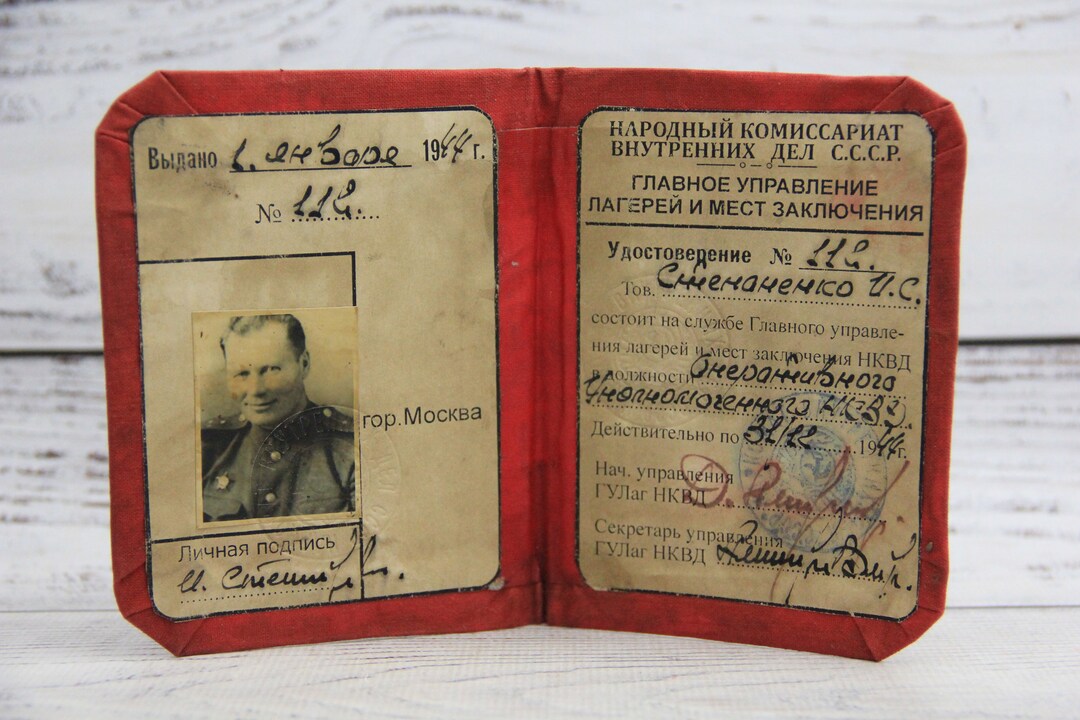 Выдано 1. января 1944 г.
№ 112.
гор. Москва
Личная подпись
НАРОДНЫЙ КОМИССАРИАТ
ВНУТРЕННИХ ДЕЛ С.С.С.Р.
ГЛАВНОЕ УПРАВЛЕНИЕ
ЛАГЕРЕЙ И МЕСТ ЗАКЛЮЧЕНИЯ
Удостоверение № 112.
Тов. Степаненко И.С.
состоит на службе Главного управле-
ния лагерей и мест заключения НКВД
в должности Оперативного
Уполномоченного НКВД.
Действительно по 31/12 1944г.
Нач. управления
ГУЛаг НКВД
Секретарь управления
ГУЛаг НКВД